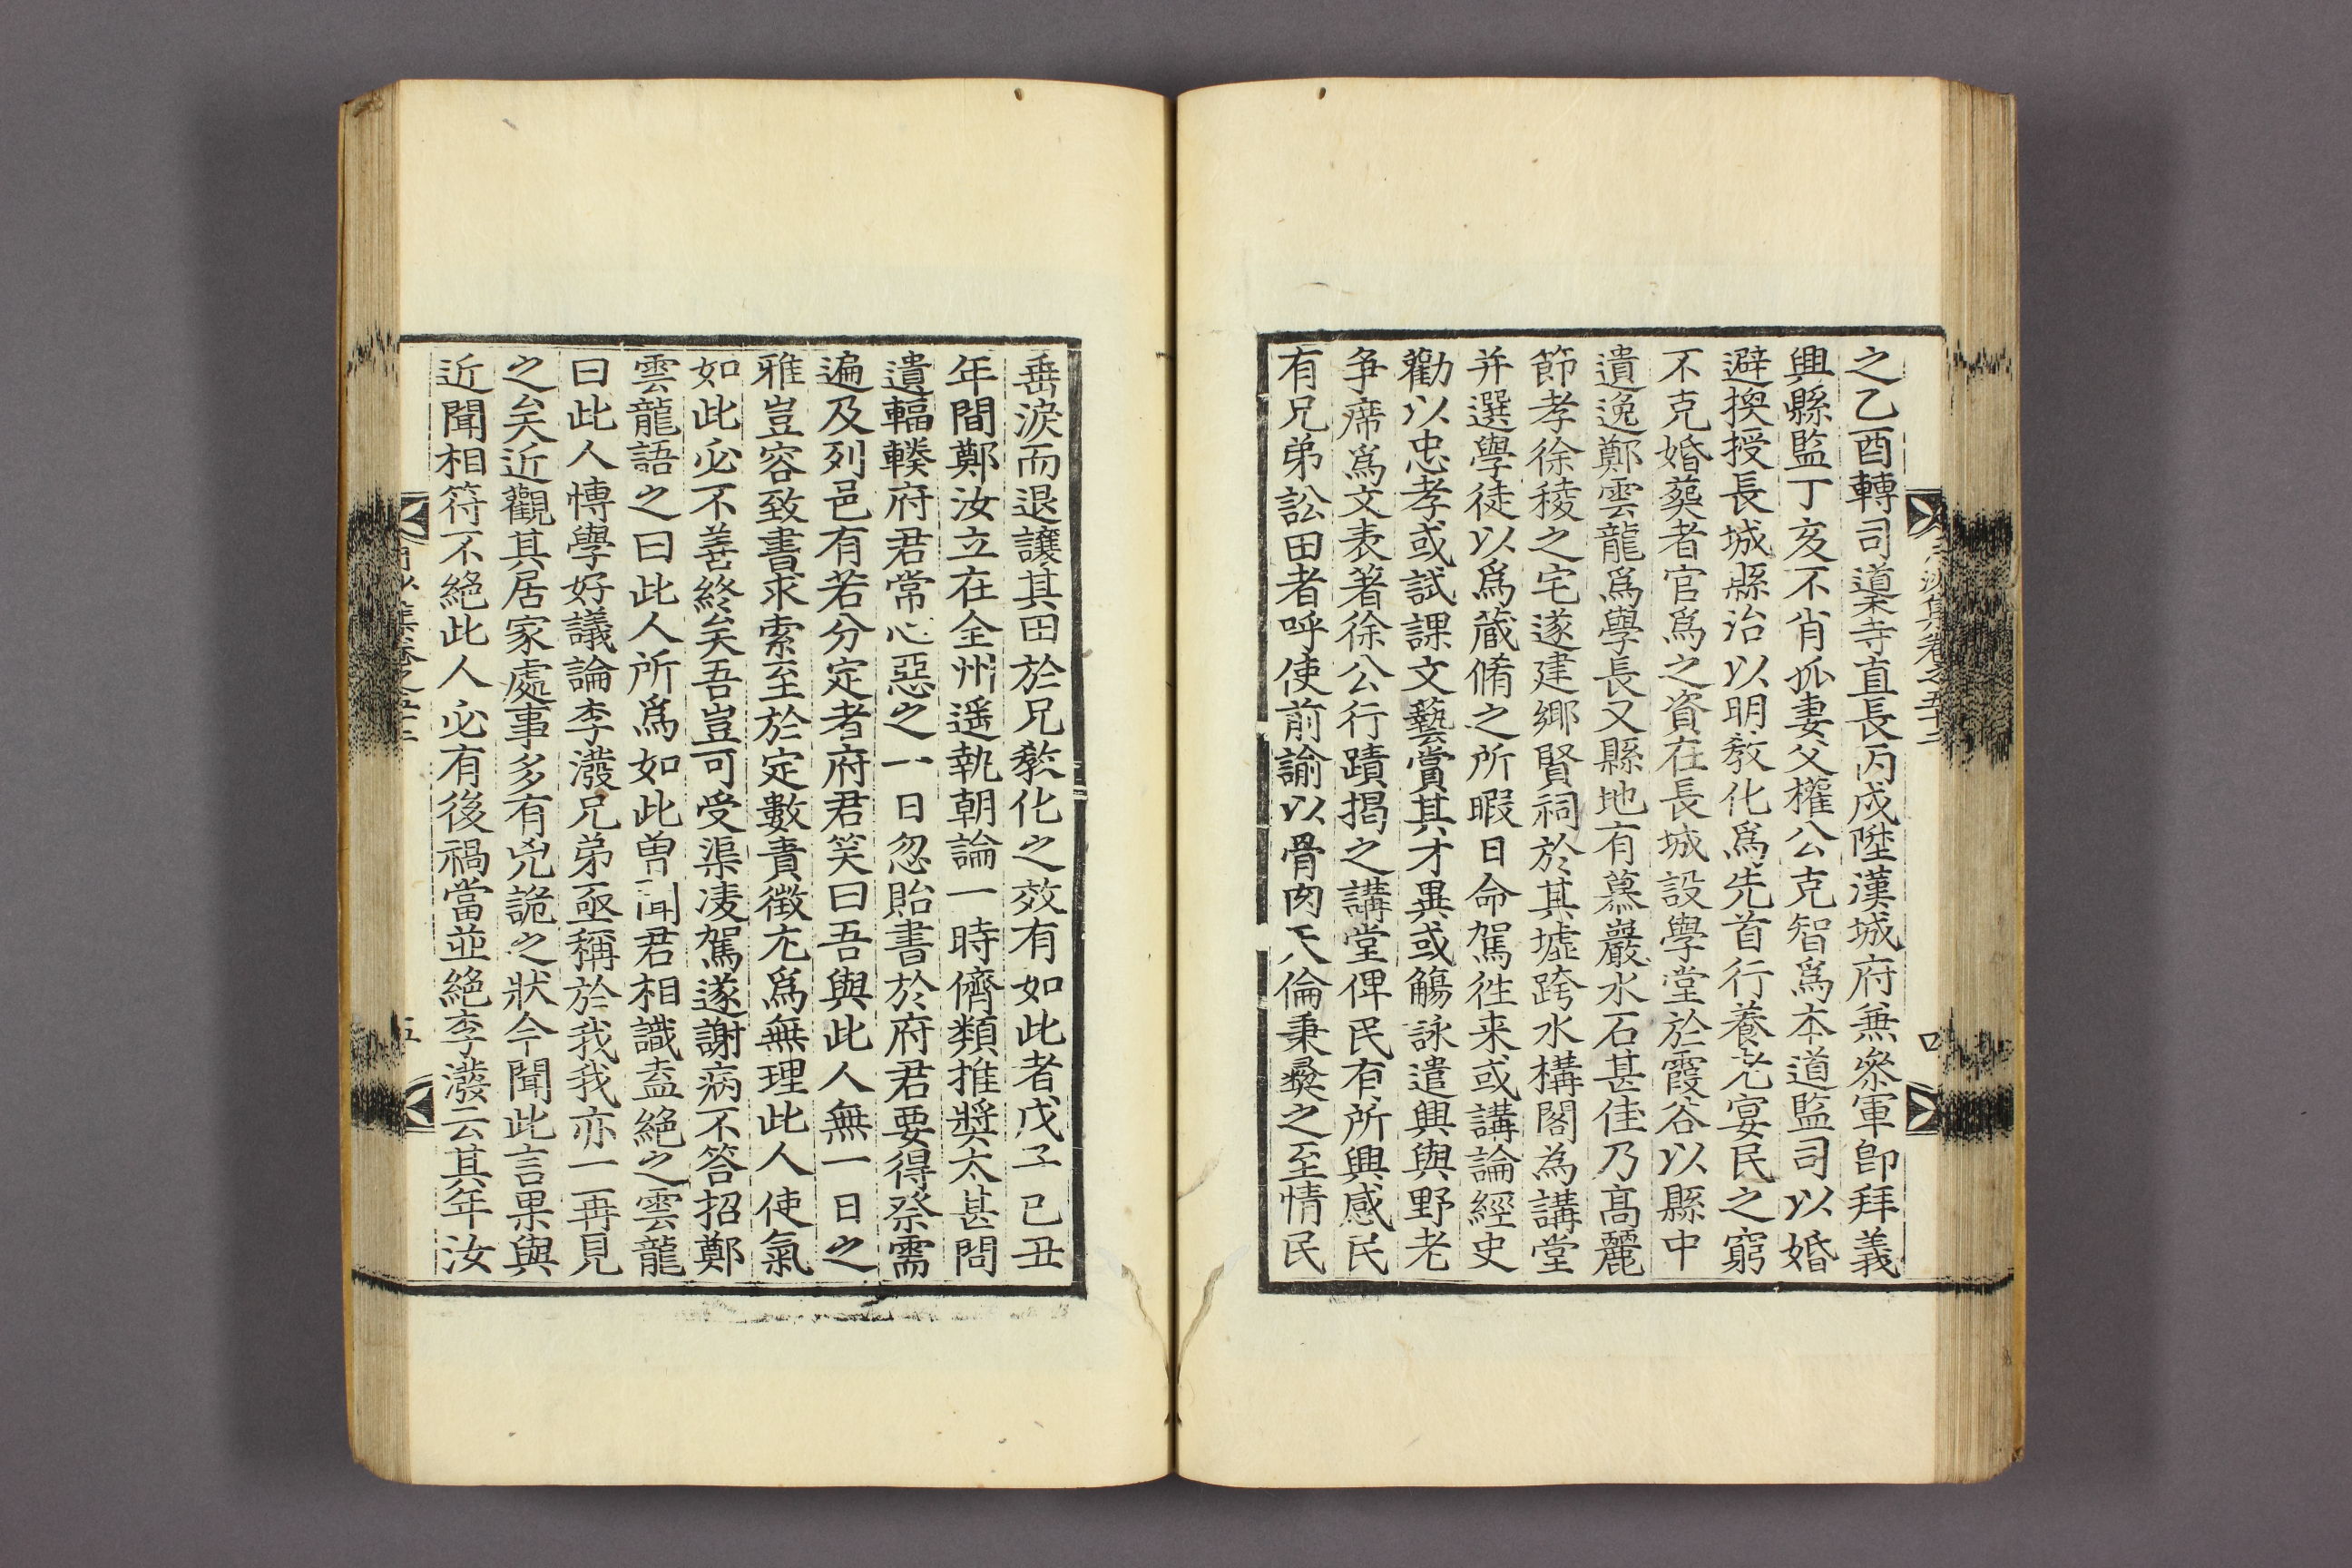 之乙酉轉司䆃寺直長丙戌陞漢城府兼叅軍卽拜義
興縣監丁亥不肖孤妻父權公克智爲本道監司以婚
避換授長城縣治以明敎化爲先首行養老宴民之窮
不克婚葬者官爲之資在長城設學堂於霞谷以縣中
遺逸鄭雲龍爲學長又縣地有慕巖水石甚佳乃高麗
節孝徐稜之宅遂建鄕賢祠於其墟跨水構閣為講堂
幷選學徒以爲藏脩之所暇日命駕徃来或講論經史
勸以忠孝或試課文藝賞其才異或觴詠遣興與野老
爭席爲文表著徐公行蹟揭之講堂俾民有所興感民
有兄弟訟田者呼使前諭以骨肉天倫秉彛之至情民
垂淚而退讓其田於兄敎化之效有如此者戊子己丑
年間鄭汝立在全州遥執朝論一時儕類推奬太甚問
遺輻輳府君常心惡之一日忽貽書於府君要得祭需
遍及列邑有若分定者府君笑曰吾與此人無一日之
雅豈容致書求索至於定數責徵尢爲無理此人使氣
如此必不善終矣吾豈可受渠凌駕遂謝病不答招鄭
雲龍語之曰此人所爲如此曾聞君相識盍絶之雲龍
曰此人博學好議論李潑兄弟亟稱於我我亦一再見
之矣近觀其居家處事多有兇詭之狀今聞此言果與
近聞相符不絶此人必有後禍當並絶李潑云其年汝